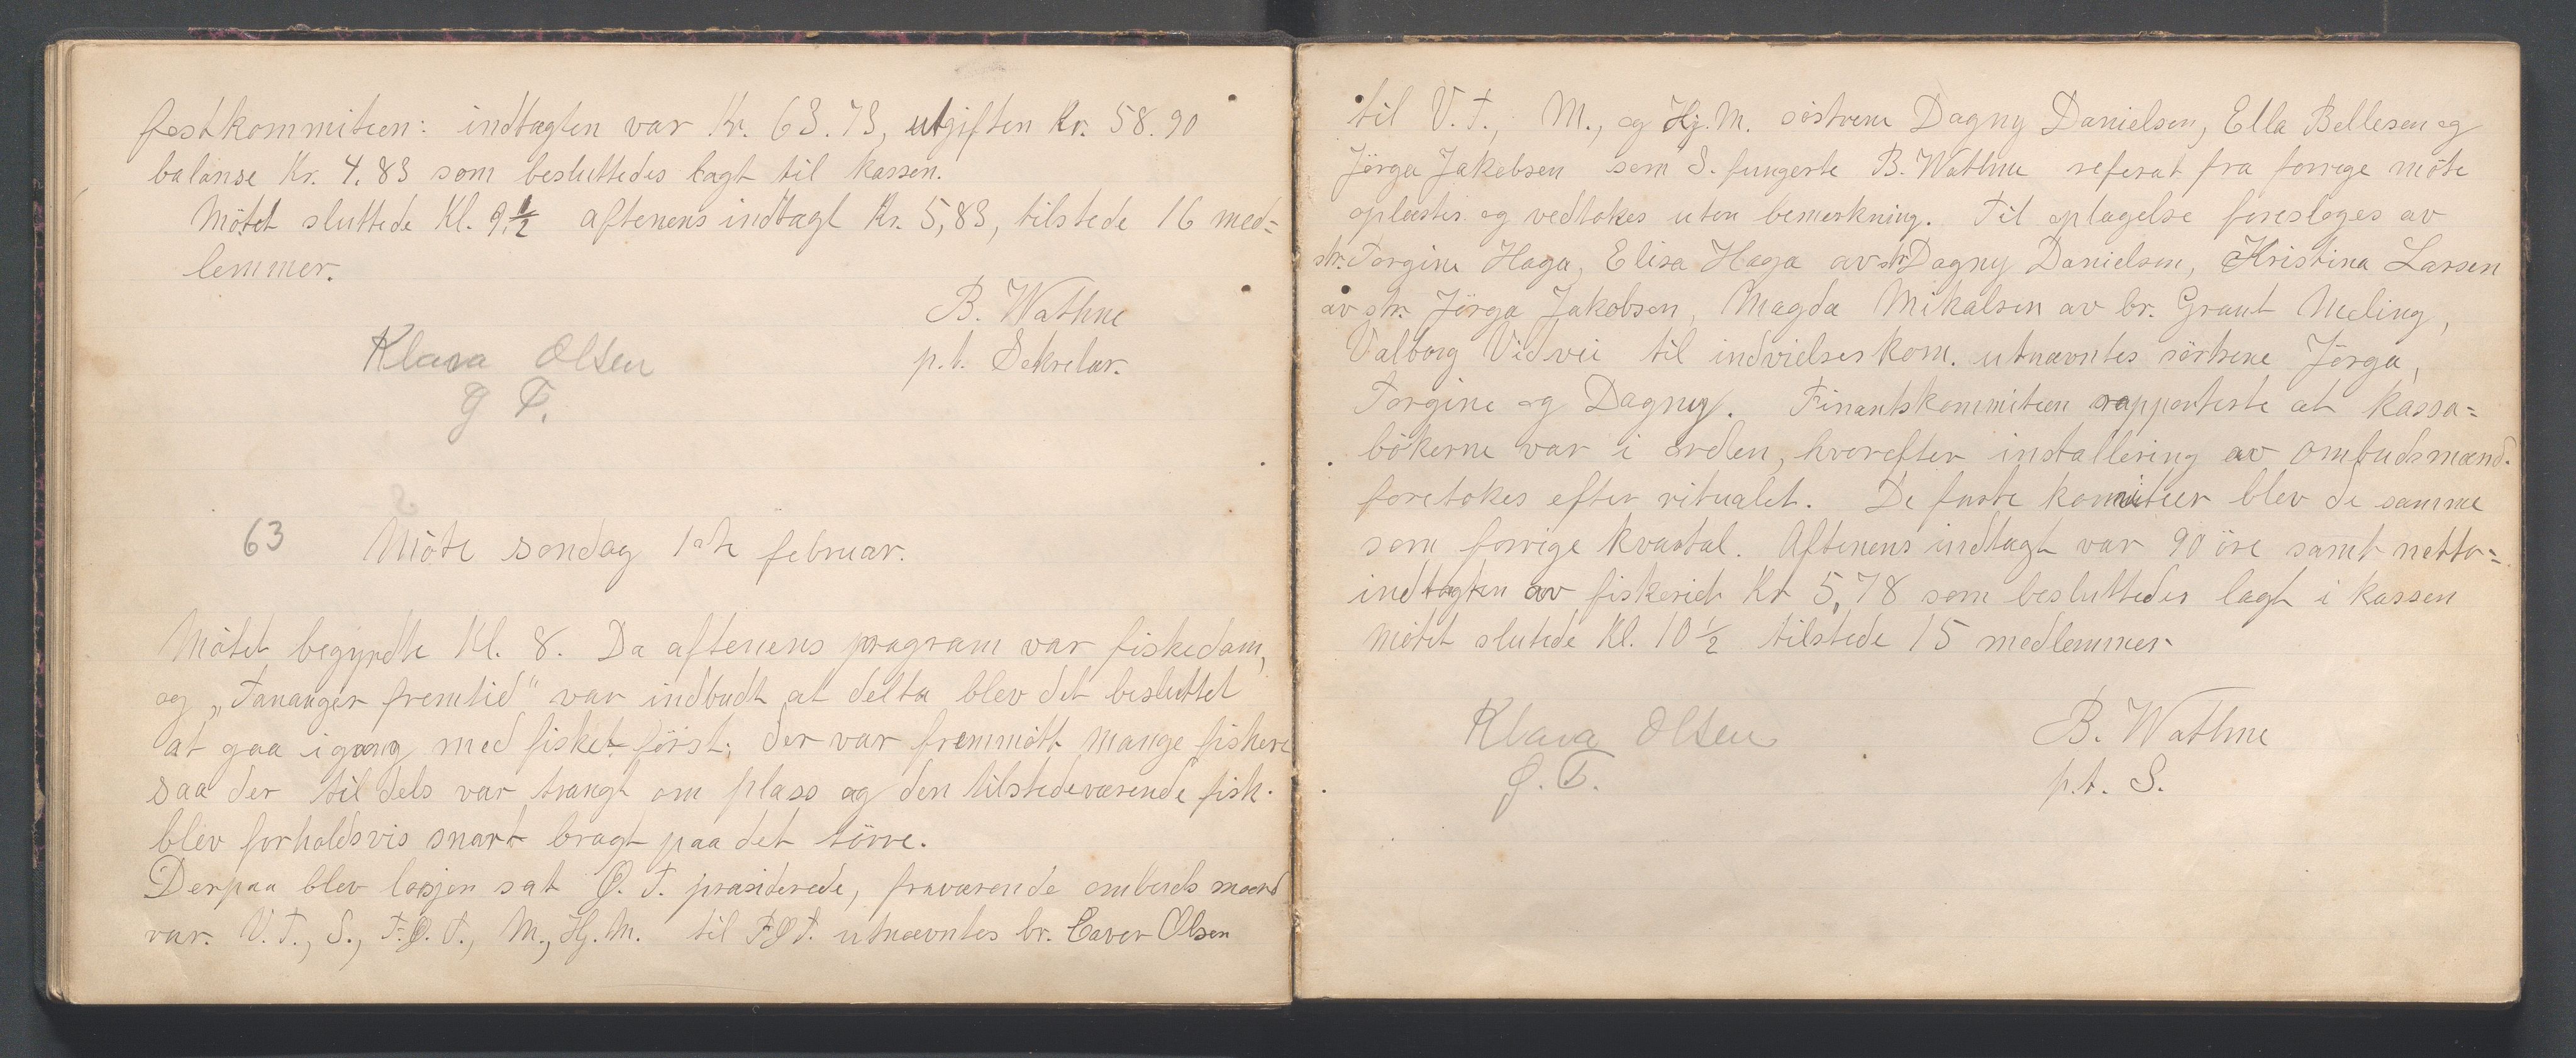 festkommiteen: indtagten var Kr. 63.73, utgiften Kr. 58.90
balanse Kr. 4.83 som besluttedes lagt til kassen.
Mötet sluttede Kl. 9 1/2 aftenens indtagt Kr. 5,83, tilstede 16 med=
lemmer.
B. Wathne
p.t. Sekretær.
Klara Olsen
G T.
63 Möte søndag 1ste februar.
Mötet begyndte Kl. 8. Da aftenens program var fiskedam,
og „Tananger fremtid" var indbudt at delta blev det besluttet
at gaa igang med fisket först; der var fremmött mange fiskere
saa der til dels var trangt om plass og den tilstedeværende fisk.
blev forholdsvis snart bragt paa det törre.
Derpaa blev losjen sat G. T. præsiderede, fraværende ombudsmænd
var. V.T., S., F.G.T., M., Hj.M. til FGT. utnævntes br. Caver Olsen
til V.T., M., og Hj.M. söstrene Dagny Danielsen, Ella Bellesen og
Jörga Jakobsen som S. fungerte B. Wathne referat fra forrige möte
oplæstes og vedtokes uten bemerkning. Til optagelse foresloges av
str. Torgine Haga, Elisa Haga av str Dagny Danielsen, Kristina Larsen
av str. Jörga Jakobsen, Magda Mikalsen av br. Graut Meling,
Valborg Vidvei til indvielseskom. utnævntes söstrene Jörga,
Torgine og Dagny. Finantskommiteen rapporterte at kassa=
bökerne var i orden, hvorefter installering av ombudsmænd.
foretokes efter ritualet. De faste komiteer blev de samme
som forrige kvartal. Aftenens indtagt var 90 öre samt netto=
indtagten av fiskeriet Kr 5,78 som besluttedes lagt i kassen
Mötet slutede Kl. 10 1/2 tilstede 15 medlemmer
Klara Olsen
G.T.
B. Wathne
p.t. S.